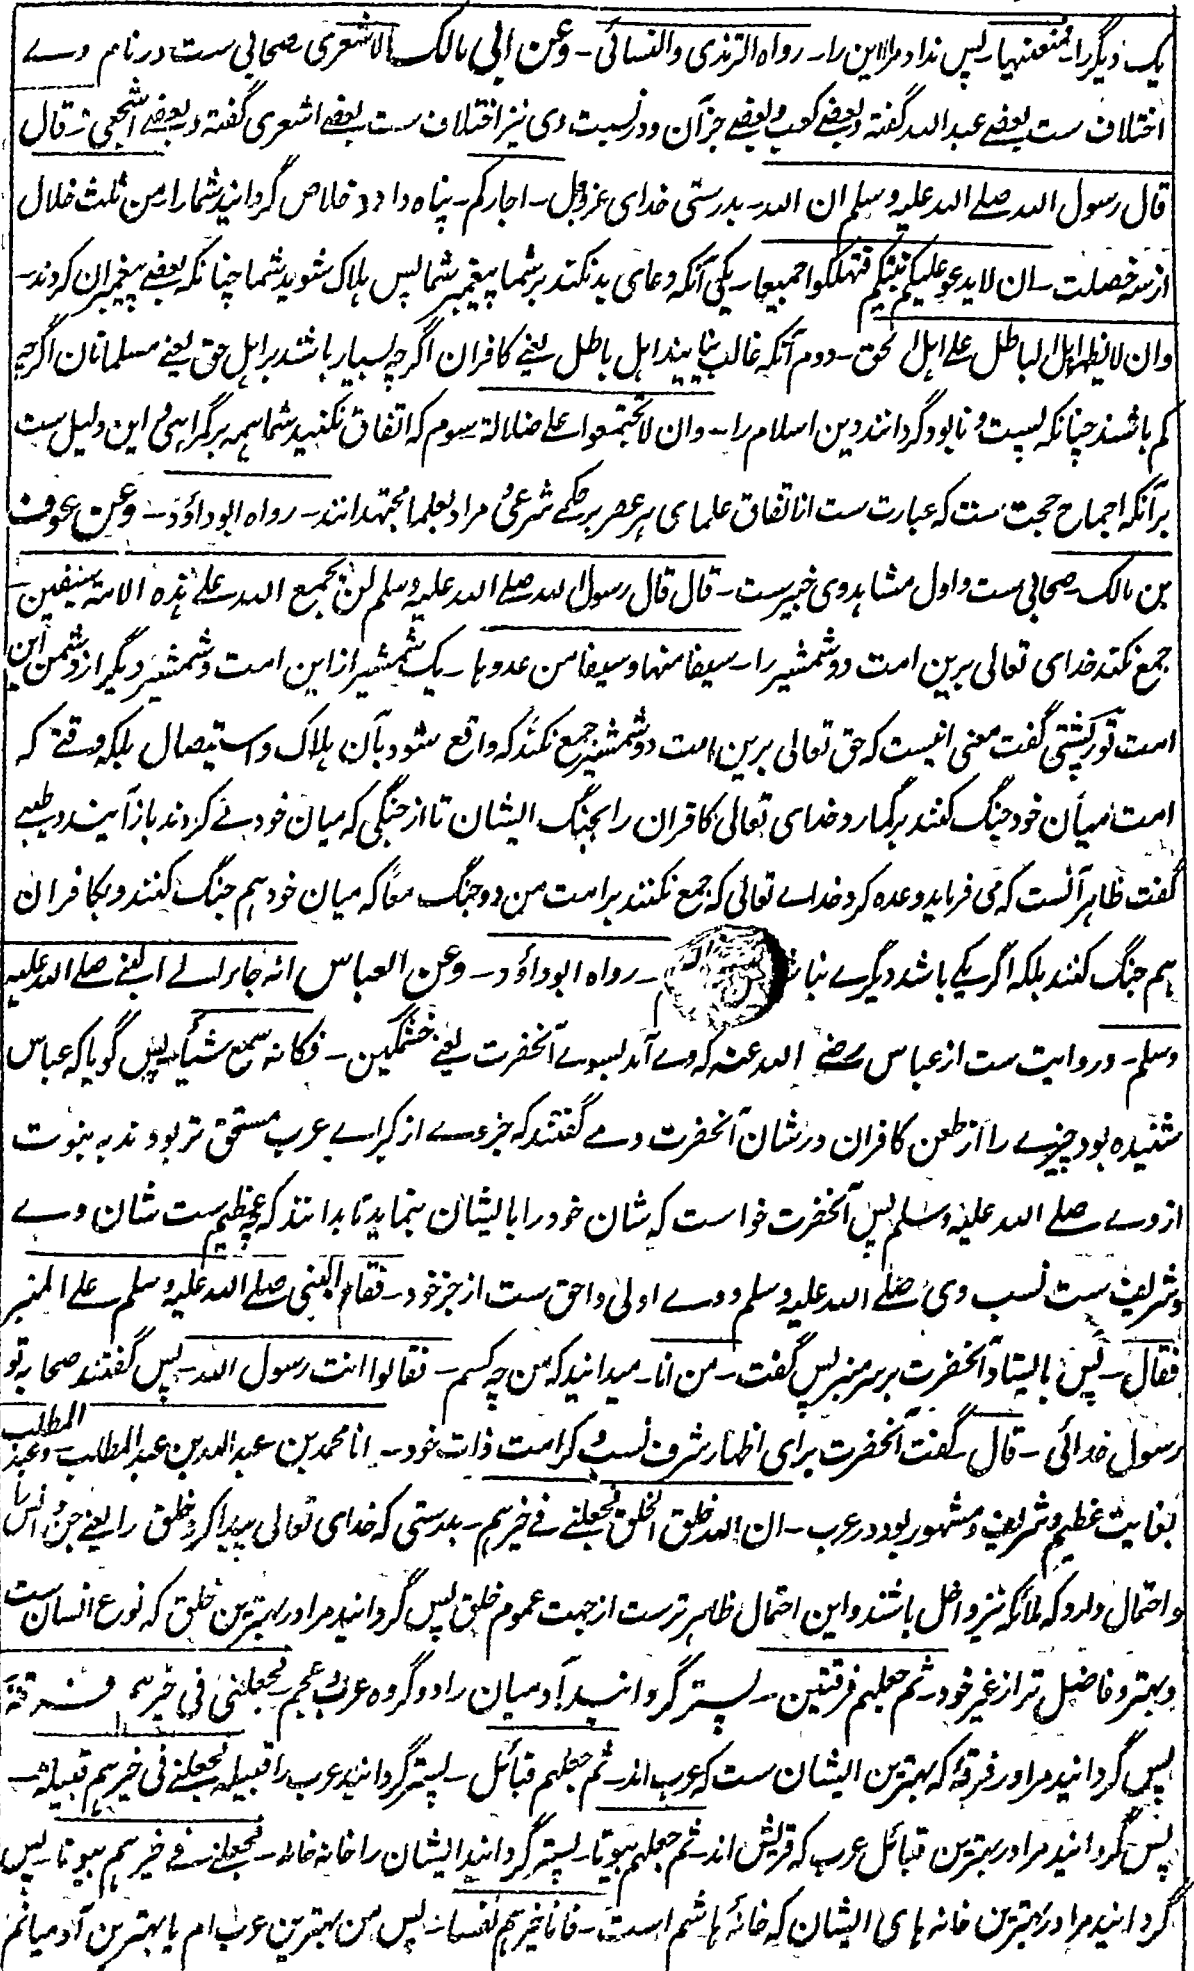 یک دیگر را فمنعنیها پس نداد مرا این را۔ رواہ الترمذی والنسائی۔ وعن ابی مالک الاشعری صحابی ست در نام وے
اختلاف ست بعضے عبد اللہ گفتہ و بعضے کعب و بعضے جزآن و در نسبت وی نیز اختلاف ست بعضے اشعری گفتہ و بعضے اشجعی۔ قال
قال رسول اللہ صلے اللہ علیہ وسلم ان اللہ۔ بدرستی خدای عزوجل۔ اجارکم۔ پناہ داد و خلاص گردانید شمارا من ثلث خلال
از سہ خصلت۔ ان لا یدعو علیکم نبیکم فتہلکوا جمیعا۔ یکی آنکہ دعای بد نکند بر شما پیغمبر شما پس ہلاک شوید شما چنانکہ بعضے پیغمبران کردند۔
وان لا یظہر اہل الباطل علے اہل الحق۔ دوم آنکہ غالب نیایند اہل باطل یعنے کافران اگرچہ بسیار باشند بر اہل حق یعنے مسلمانان اگرچہ
کم باشند چنانکہ پست و نابود گردانند دین اسلام را۔ وان لا تجتمعوا علے ضلالة سوم کہ اتفاق نکنید شما ہمہ بر گمراہی و این دلیل ست
بر آنکہ اجماع حجت ست کہ عبارت ست از اتفاق علمای ہر عصر بر حکمے شرعی و مراد بعلما مجتہدانند۔ رواہ ابوداؤد۔ وعن عوف
بن مالک۔ صحابی ست و اول مشاہد وی خیبر ست۔ قال قال رسول اللہ صلے اللہ علیہ وسلم لن یجمع اللہ علے ہذہ الامة سیفین۔
جمع نکند خدای تعالی برین امت دو شمشیر را۔ سیفا منہا وسیفا من عدوہا۔ یک شمشیر از این امت و شمشیر دیگر از دشمن این
امت تورپشتی گفت معنی اینست کہ حق تعالی برین امت دو شمشیر جمع نکند کہ واقع شود بآن ہلاک و استیصال بلکہ وقتے کہ
امت میان خود جنگ کنند برگمارد خدای تعالی کافران را بجنگ ایشان تا از جنگی کہ میان خود مے کردند باز آیند و طیبے
گفت ظاہر آنست کہ می فرماید وعدہ کرد خداے تعالی کہ جمع نکند بر امت من دو جنگ معا کہ میان خود ہم جنگ کنند و بکافران
ہم جنگ کنند بلکہ اگر یکے باشد دیگرے نبا۔ رواہ ابوداؤد۔ وعن العباس انہ جاء الے النبے صلے اللہ علیہ
وسلم۔ و روایت ست از عباس رضے اللہ عنہ کہ وے آمد بسوے آنحضرت یعنے خشمگین۔ فکانہ سمع شیأ۔ پس گویا کہ عباس
شنیدہ بود چیزے را از طعن کافران در شان آنحضرت و مے گفتند کہ جز وے از کبراے عرب مستحق تر بودند بہ نبوت
از وے صلے اللہ علیہ وسلم پس آنحضرت خواست کہ شان خود را با ایشان بنماید تا بدانند کہ چہ عظیم ست شان وے
و شریف ست نسب وی صلے اللہ علیہ وسلم و وے اولی و احق ست از جز خود۔ فقام النبی صلے اللہ علیہ وسلم علے المنبر
فقال۔ پس بایستاد آنحضرت بر سر منبر پس گفت۔ من انا۔ میدانید کہ من چہ کسم۔ فقالوا انت رسول اللہ۔ پس گفتند صحابہ تو
رسول خدائی۔ قال۔ گفت آنحضرت برای اظہار شرف نسب و کرامت ذات خود۔ انا محمد بن عبد اللہ بن عبد المطلب۔ و عبد المطلب
بغایت عظیم و شریف و مشہور بود در عرب۔ ان اللہ خلق الخلق فجعلنے فے خیرہم۔ بدرستی کہ خدای تعالی پیدا کرد خلق را یعنے جن و انس را
و احتمال دارد کہ ملائکہ نیز داخل باشند و این احتمال ظاہر ترست از جہت عموم خلق پس گردانید مرا در بہترین خلق کہ نوع انسان ست
و بہتر و فاضل تر از غیر خود۔ ثم جعلہم فرقتین۔ پستر گردانید آدمیان را دو گروہ عرب و عجم۔ فجعلنی فی خیرہم فرقة
پس گردانید مرا در فرقۂ کہ بہترین ایشان ست کہ عرب اند۔ ثم جعلہم قبائل۔ پستر گردانید عرب را قبیلہ۔ فجعلنے فی خیرہم قبیلة۔
پس گردانید مرا در بہترین قبائل عرب کہ قریش اند۔ ثم جعلہم بیوتا۔ پستر گردانید ایشان را خانہ خانہ۔ فجعلنے فے خیرہم بیوتا۔ پس
گردانید مرا در بہترین خانہ ہای ایشان کہ خانۂ ہاشم است۔ فانا خیرہم نفسا۔ پس من بہترین عرب ام یا بہترین آدمیانم